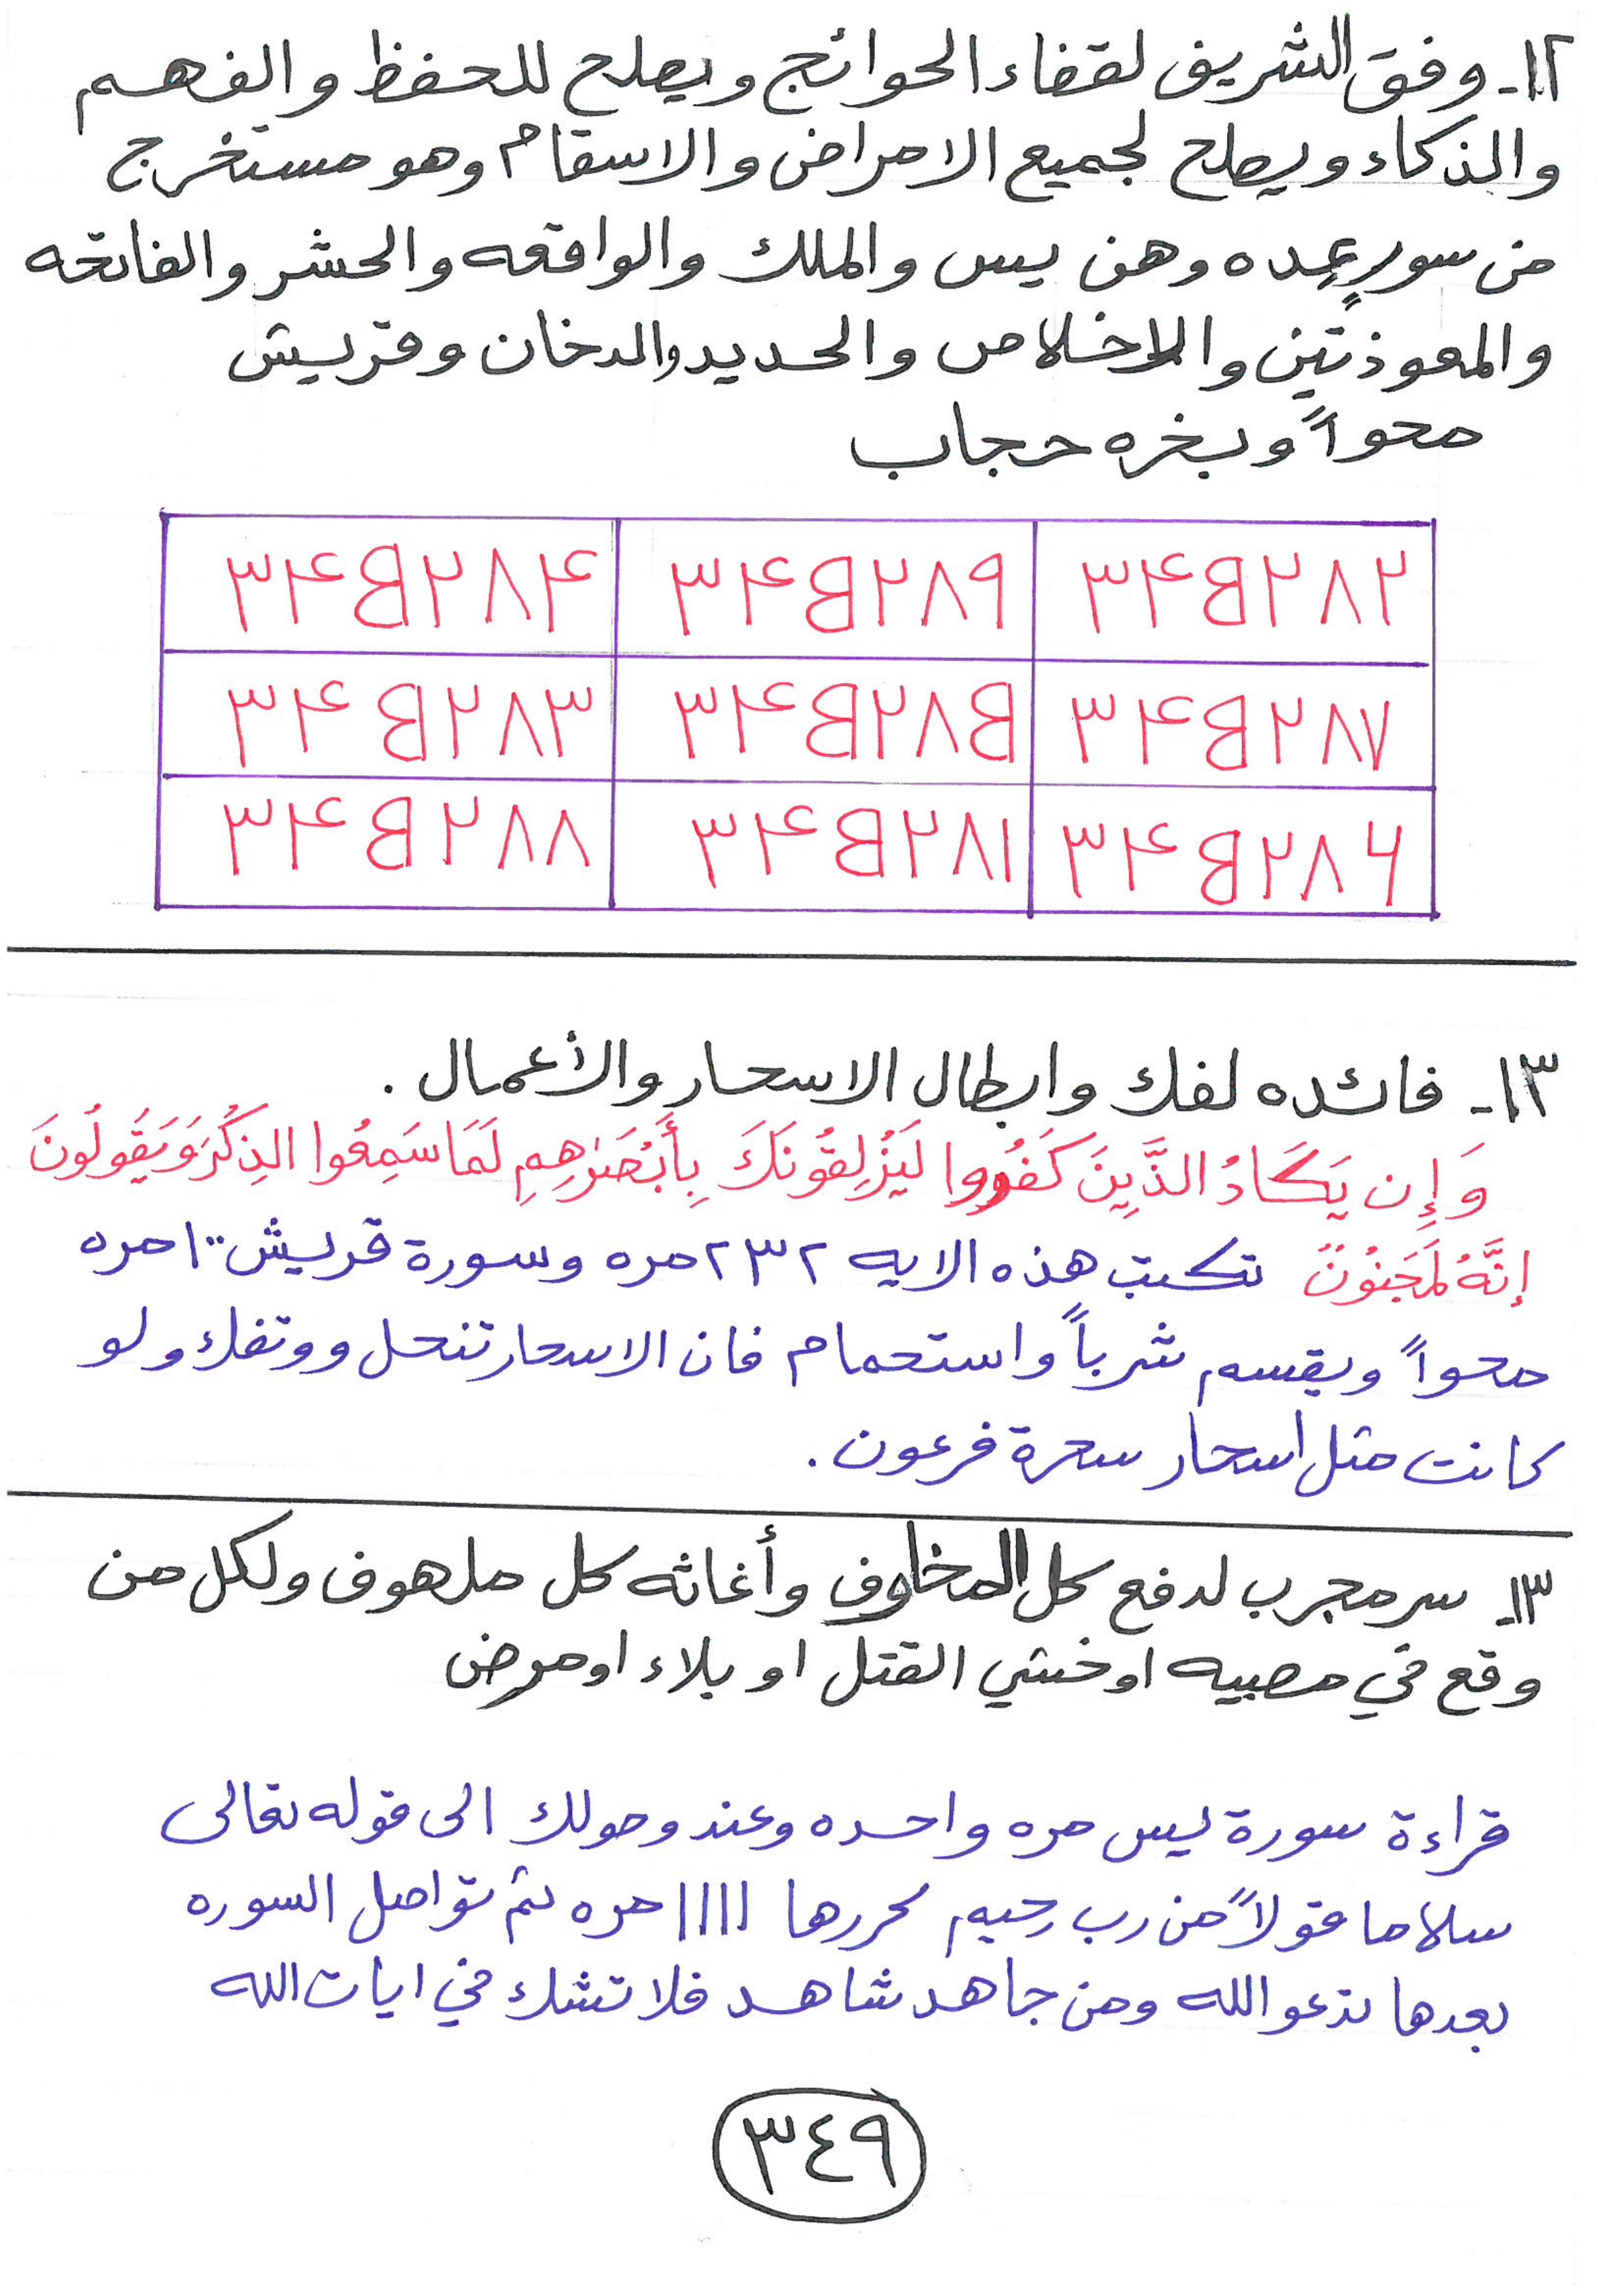 ١٢- وفق الشريف لقضاء الحوائج ويصلح للحفظ والفهم
والذكاء ويصلح لجميع الامراض والاسقام وهو مستخرج
من سورٍ عِده وهن يس والملك والواقعه والحشر والفاتحه
والمعوذتين والاخلاص والحديد والدخان وقريش
محواً وبخره حجاب
٣۴B٢٨۴ ٣۴B٢٨٩ ٣۴B٢٨٢
٣۴B٢٨٣ ٣۴B٢٨B ٣۴B٢٨٧
٣۴B٢٨٨ ٣۴B٢٨١ ٣۴B٢٨۶
١٣- فائده لفك وابطال الاسحار والأعمال .
وَإِن يَكَادُ الذَّيِنَ كَفَرُوا لَيَزْلِقُونَكَ بِأَبْصَرِٰهِمِ لَمَا سَمِعُوا الذِكْرَ وَيَقَولُونَ
إنَّهُ لَمَجَنوُنٌ تكتب هذه الايه ٢٣٢ مره وسورة قريش ١٠٠ مره
محواً ويقسم شرباً واستحمام فان الاسحار تنحل ووتفك ولو
كانت مثل اسحار سحرة فرعون .
١٣- سر مجرب لدفع كل المخاوف وأغاثه كل ملهوف ولكل من
وقع في مصيبه او خشي القتل او بلاء او مرض
قراءة سورة يس مره واحده وعند وصولك الى قوله تعالى
سلاما قولاً من رب رحيم كررها ١١١١ مره ثم تواصل السوره
بعدها تدعو الله ومن جاهد شاهد فلا تشك في ايات الله
٣٤٩